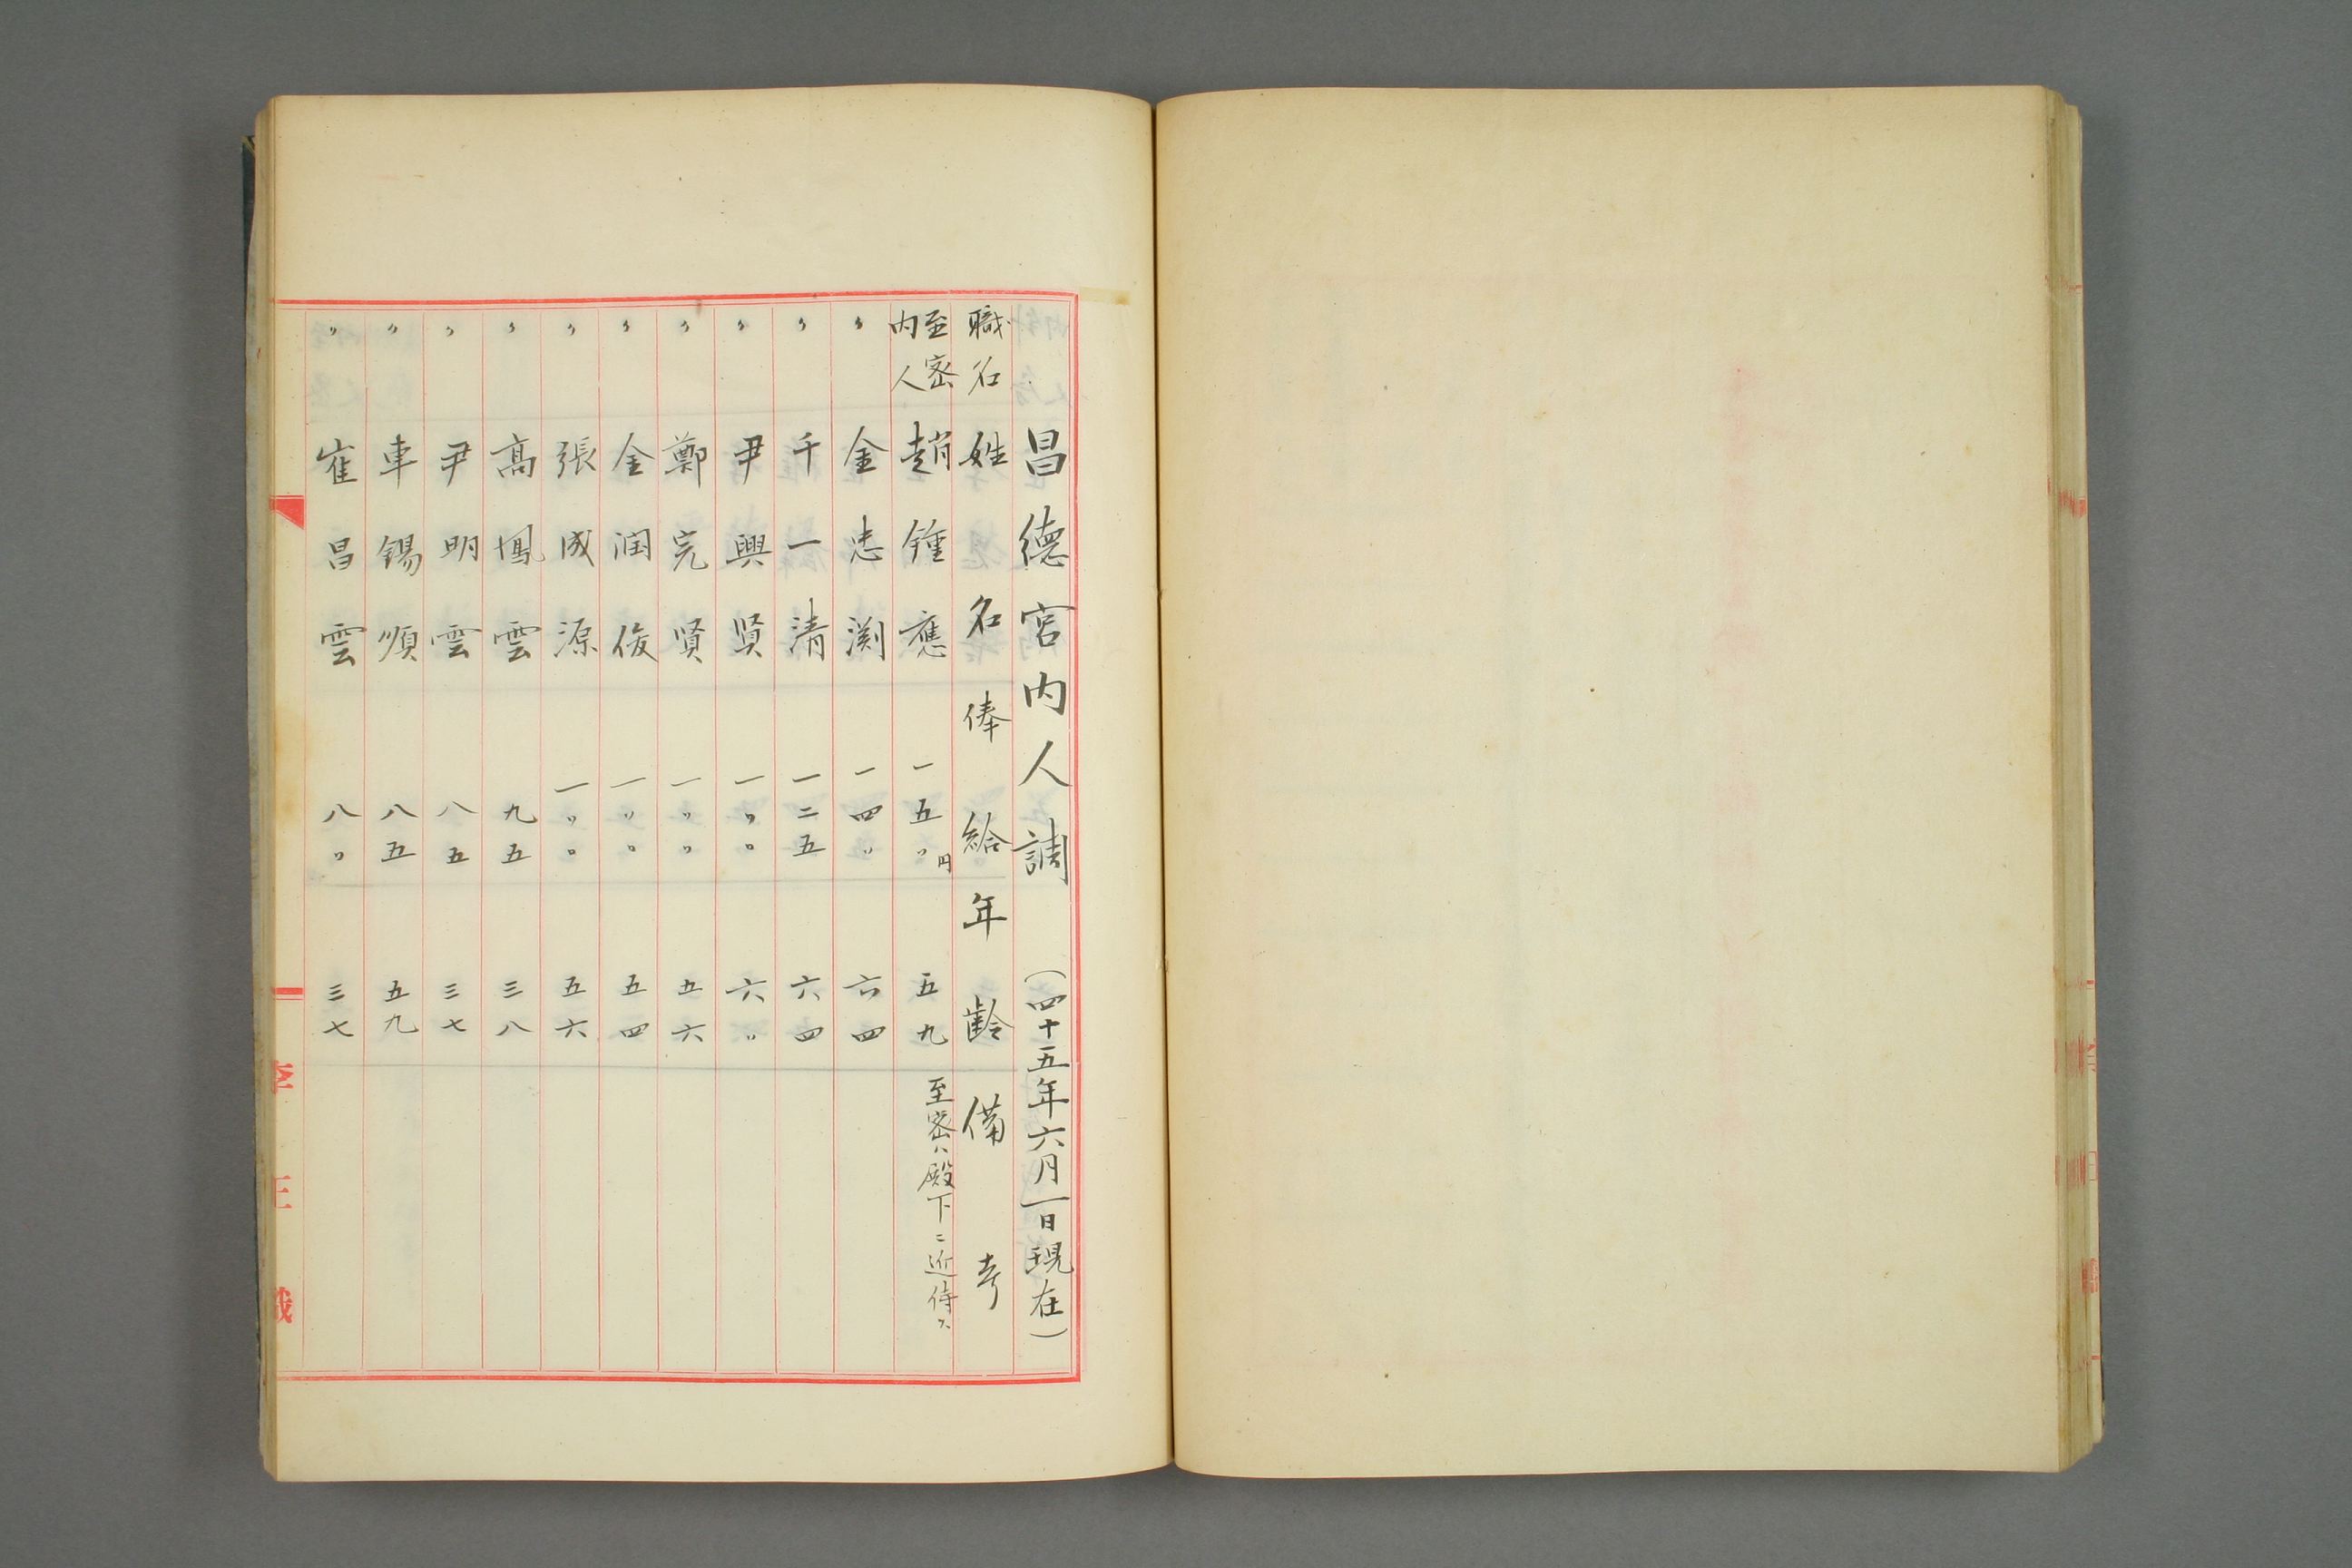 昌德宮內人調 (四十五年六月一日現在)
職名 姓名 俸給 年齡 備考
至密內人 趙鍾應 一五〇円 五九 至密ハ殿下ニ近侍ス
〃 金忠渕 一四〇 六四
〃 千一清 一二五 六四
〃 尹興賢 一〇〇 六〇
〃 鄭完賢 一〇〇 五六
〃 金润俊 一〇〇 五四
〃 張成源 一〇〇 五六
〃 高鳳雲 九五 三八
〃 尹明雲 八五 三七
〃 車錫順 八五 五九
〃 崔昌雲 八〇 三七
李王職